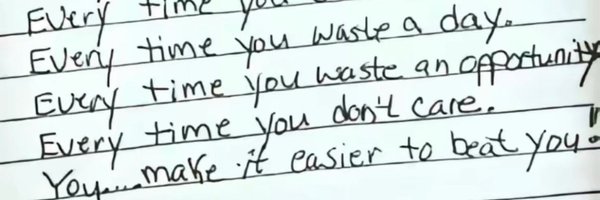 Every time you
Every time you waste a day.
Every time you waste an opportunity
Every time you don't care.
You.....make it easier to beat you!